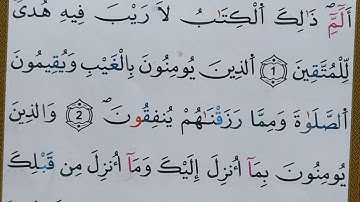 أَلَٓمِّٓۖ ذَٰلِكَ اَ۬لْكِتَٰبُ لَا رَيْبَ فِيهِ هُدىٗ
لِّلْمُتَّقِينَ 1 اَ۬لذِينَ يُومِنُونَ بِالْغَيْبِ وَيُقِيمُونَ
اَ۬لصَّلَوٰةَ وَمِمَّا رَزَقْنَٰهُمْ يُنفِقُونَۖ 2 وَالذِينَ
يُومِنُونَ بِمَآ أُنزِلَ إِلَيْكَ وَمَآ أُنزِلَ مِن قَبْلِكَ